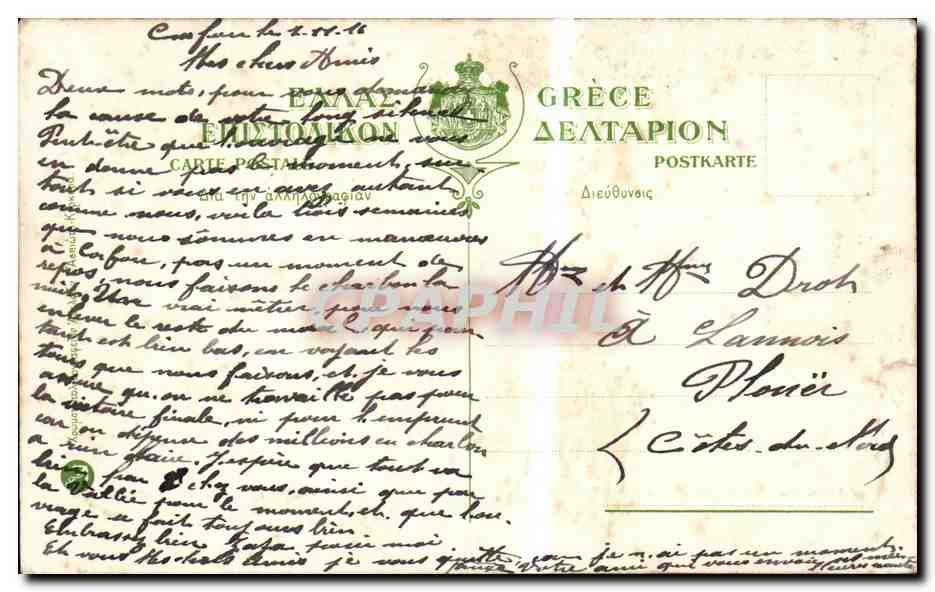 Corfou le 1-11-16
Mes chers Amis
Deux mots, pour vous demander
la cause de votre long silence
Peut-être que l'ouvrage ne vous
en donne pas le moment, sur
tout si vous en avez autant
comme nous, voila trois semaines
que nous sômmes en manœuvres
à Corfou, pas un moment de
repos, nous faisons le charbon la
nuit, Un vrai mêtier pour nous
enlever le reste du moral, qui pour
tant est bien bas, en voyant les
tours que nous faisons, et je vous
assure qu'on ne travaille pas pour
la victoire finale, ni pour l'emprunt
car on dépense des millions en charbon
a rien faire. J'espère que tout va
bien par chez vous, ainsi que par
la Vallée pour le moment, et que
se fait toujours bien
Embrassez bien pour moi
Et vous Mes chers Amis je vous quitte, car je n'ai pas un moment.
votre ami qui vous envoie ses meil
ΕΛΛΑΣ
ΕΠΙΣΤΟΛΙΚΟΝ
CARTE POSTALE
Διὰ τὴν ἀλληλογραφίαν
GRÈCE
ΔΕΛΤΑΡΙΟΝ
POSTKARTE
Διεύθυνσις
Mr et Mme Droh
à Lannois
Plouër
(Côtes-du-Nord)
CPAPHIL